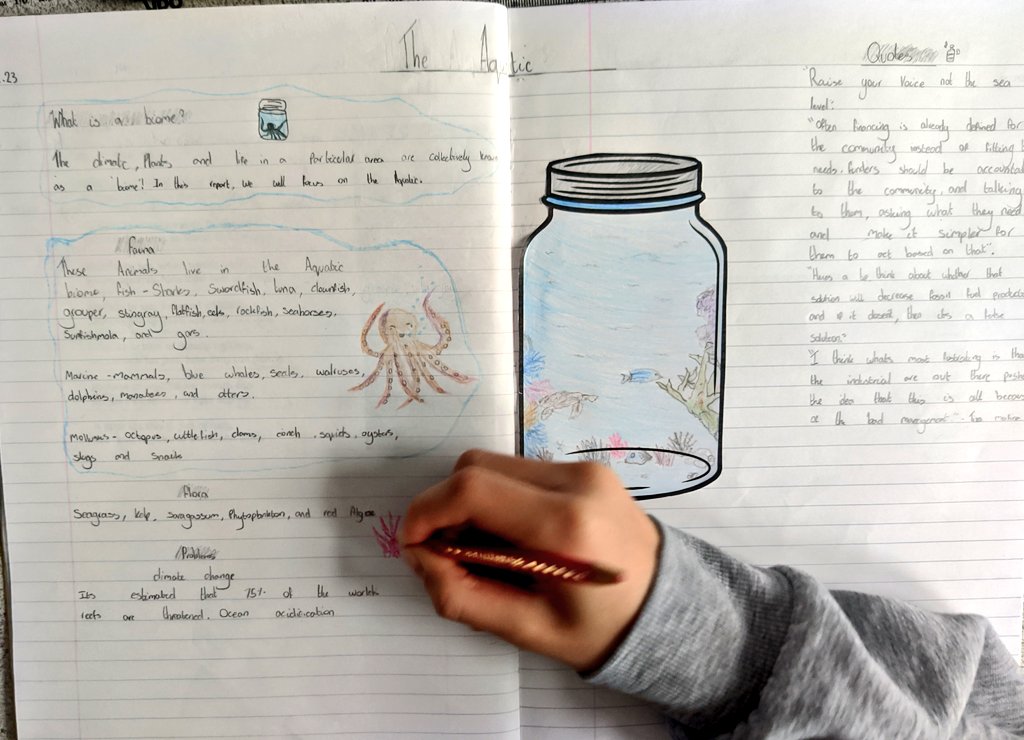 The Aquatic
.23
What is a biome?
The climate, Plants and life in a Particular area are collectively known
as a 'biome'! In this report, we will focus on the Aquatic.
Fauna
These Animals live in the Aquatic
biome, fish - Sharks, Swordfish, tuna, clownfish,
grouper, stingray, flatfish, eels, rockfish, seahorses,
Sunfishmola, and gars.
Marine - mammals, blue whales, seals, walruses,
dolphins, manatees, and otters.
Molluscs - octopus, cuttlefish, clams, conch, squids, oysters,
slugs and snails
Flora
Seagrass, kelp, saragassum, Phytoplankton, and red Algae
Problems
climate change
Its estimated that 75% of the worlds
reefs are threatened. Ocean acidication
Quotes
"Raise your Voice not the sea
level:
"Often financing is already defined for
the community instead of fitting
needs. funders should be
to the community, and talking
to them, asking what they need
and make it simpler for
them to act based on that".
a to think about whether that
solution will decrease fossil fuel
and if it doesn't, then its a false
solution."
"I think whats most is
the industrial are out there
the idea that this is all
of the bad management".